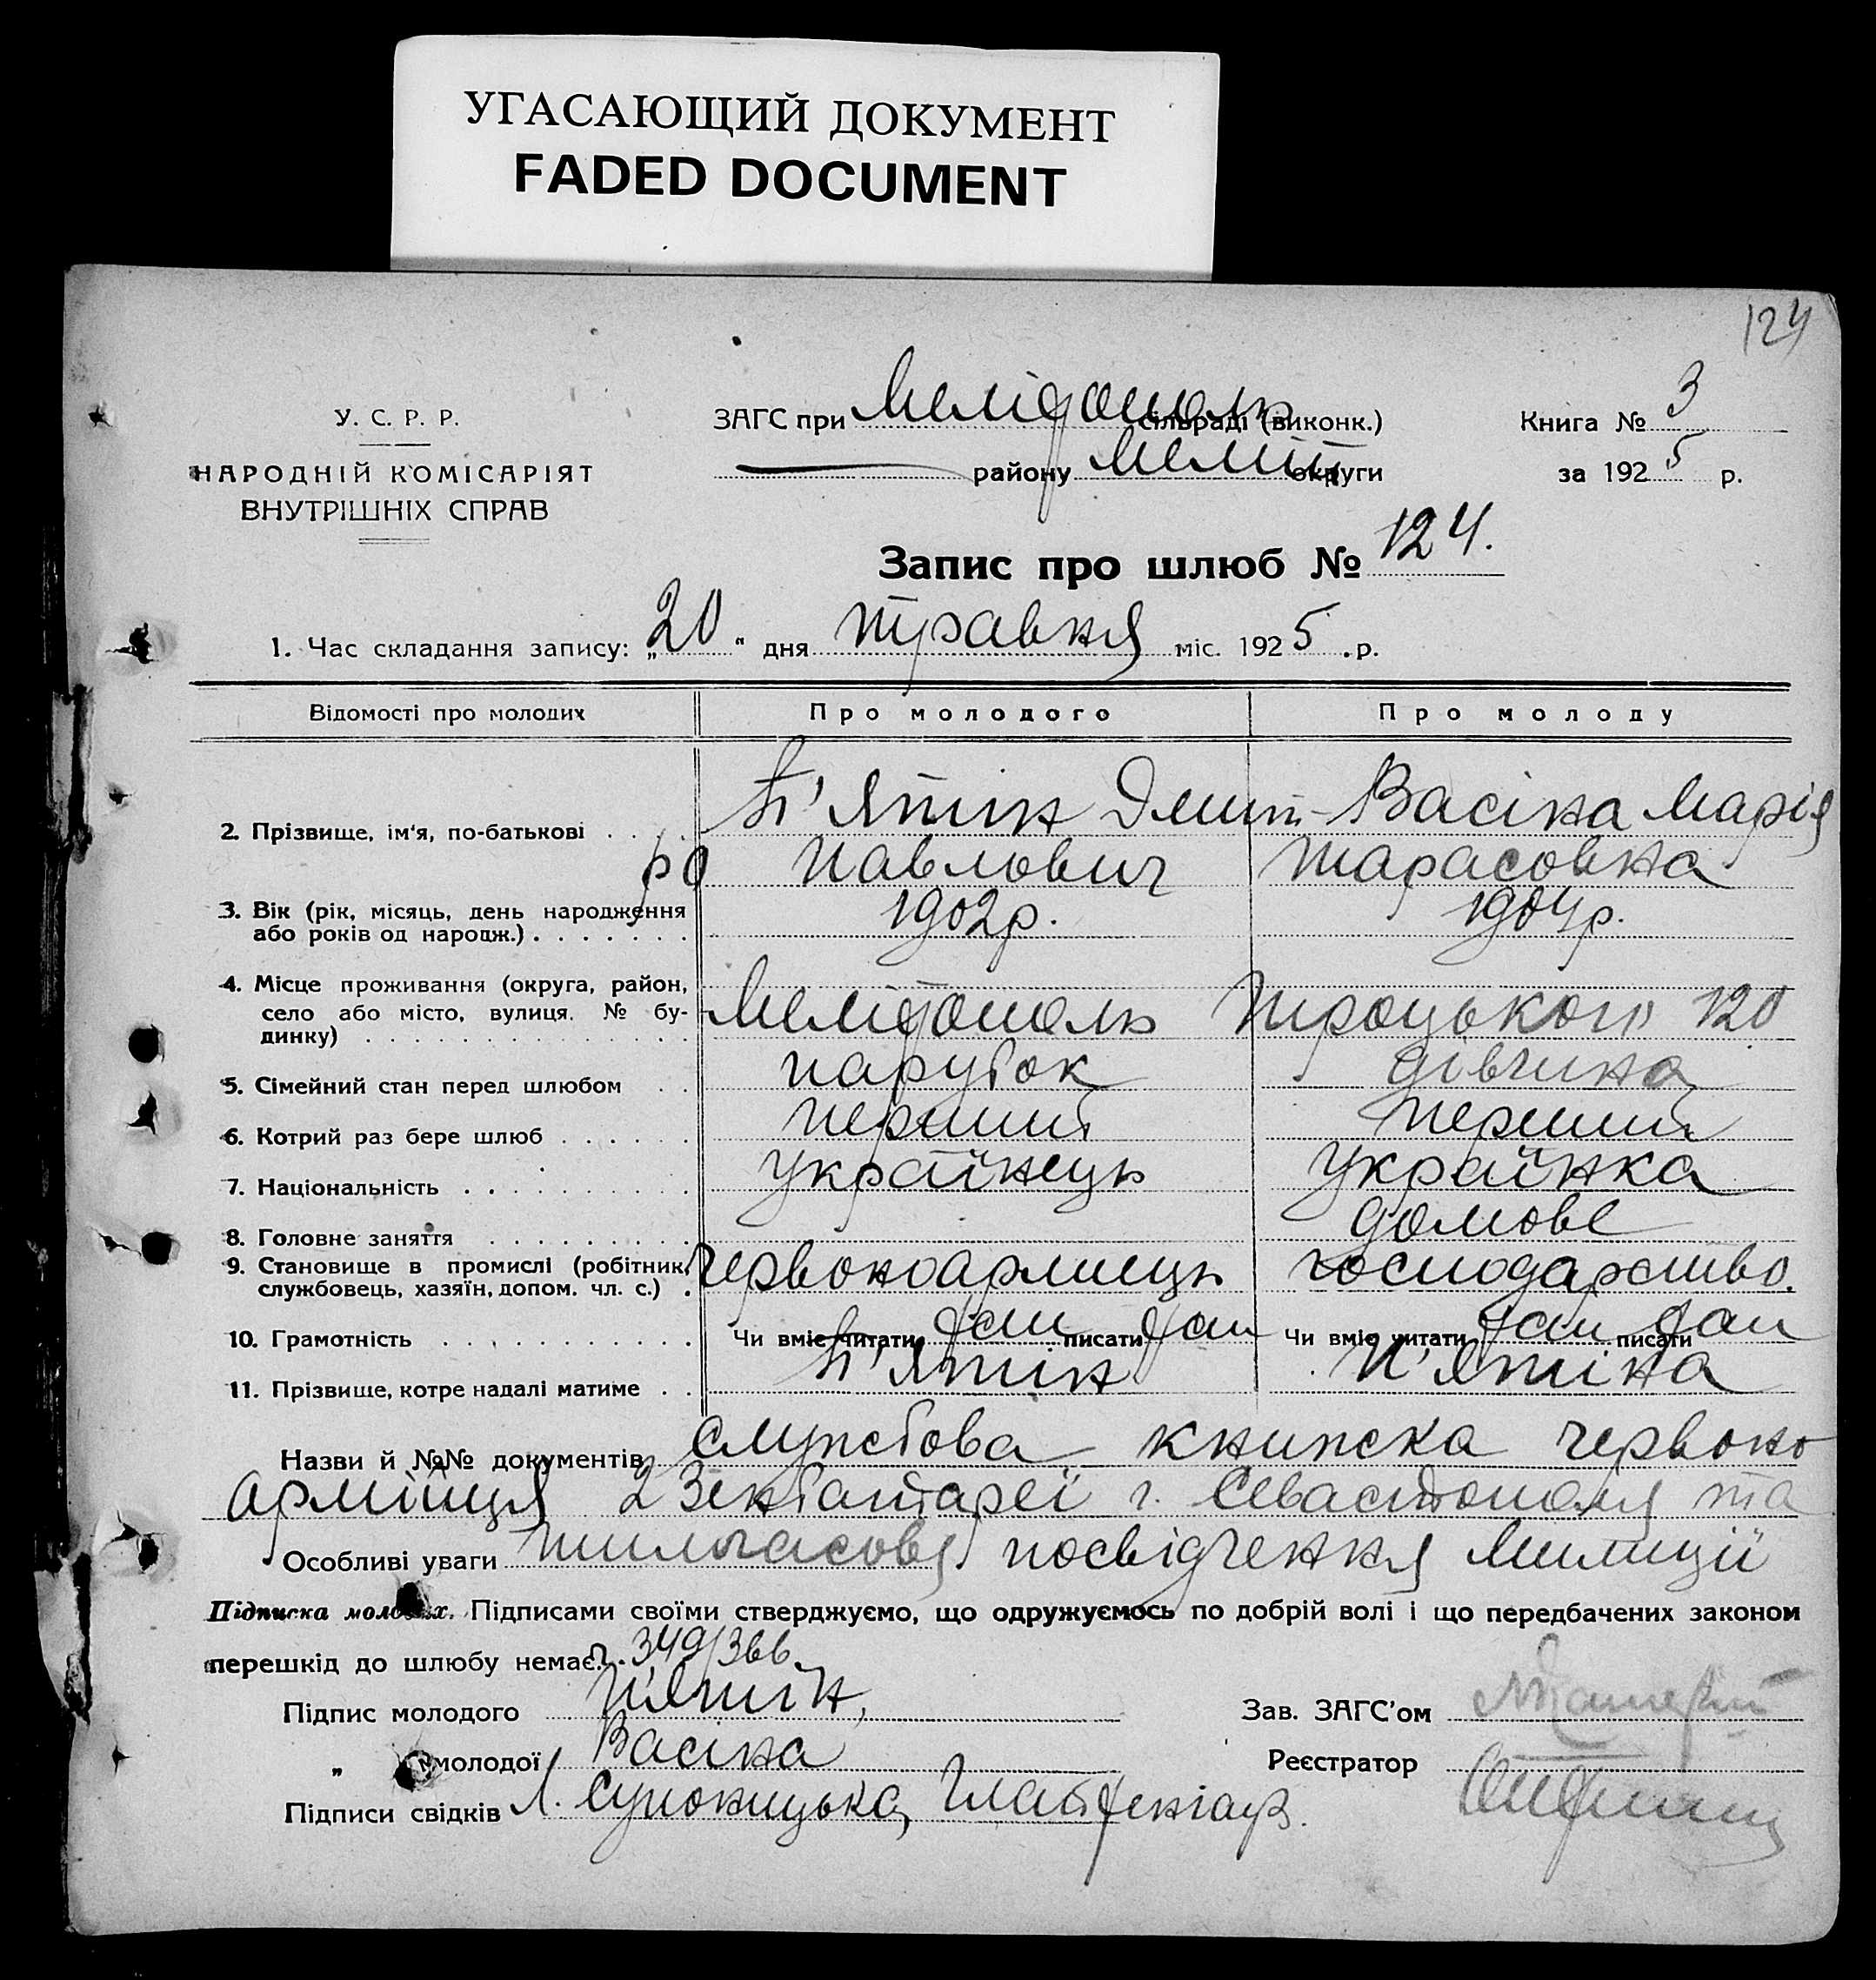 УГАСАЮЩИЙ ДОКУМЕНТ
FADED DOCUMENT
124
У. С. Р. Р.
НАРОДНІЙ КОМІСАРІЯТ
ВНУТРІШНІХ СПРАВ
ЗАГС при Мелітополь сільраді (виконк.)
району Меліт округи
Книга № 3
за 1925 р.
Запис про шлюб № 124.
1. Час складання запису: „20“ дня травня міс. 1925 .р.
Відомості про молодих Про молодого Про молоду
2. Прізвище, ім'я, по-батькові . . . . П'ятін Дмит- Васіна Марія
ро Павлович Тарасовна
3. Вік (рік, місяць, день народження 1902р. 1904р.
або років од народж.) . . . . . . .
4. Місце проживання (округа, район,
село або місто, вулиця, № бу- Мелітополь Троцького 120
динку) . . . . . . . . . . . . . .
5. Сімейний стан перед шлюбом . . парубок дівчина
6. Котрий раз бере шлюб . . . . . . перший перший
7. Національність . . . . . . . . . . українець українка
8. Головне заняття . . . . . . . . . . домове
9. Становище в промислі (робітник, червоноармиець господарство.
службовець, хазяїн, допом. чл. с.) .
10. Грамотність . . . . . . . . . . . Чи вміє читати так писати так Чи вміє читати так писати так
11. Прізвище, котре надалі матиме . . П'ятін П'ятіна
Назви й №№ документів службова книжка червоно
армійця 2 Зенбатареї г. Севастополя та
Особливі уваги тимчасове посвідчення Милиції
Підписка молодих. Підписами своїми стверджуємо, що одружуємось по добрій волі і що передбачених законом
перешкід до шлюбу немає. 349/366
Підпис молодого П'ятін,
Зав. ЗАГС'ом
„ молодої Васіна
Реєстратор
Підписи свідків Л.